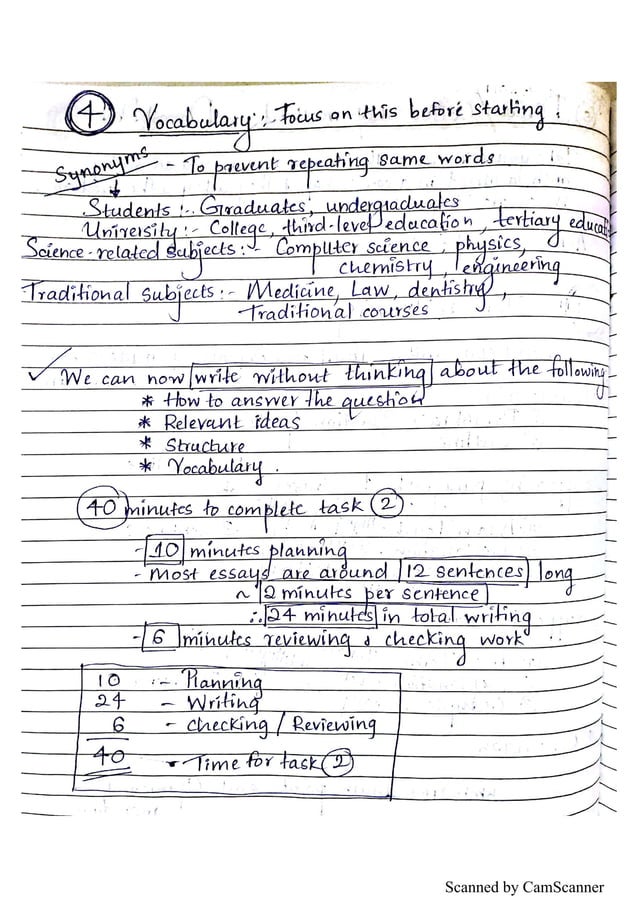 4. Vocabulary :- Focus on this before starting.
Synonyms - To prevent repeating same words
Students :- Graduates, undergraduates
University :- College, third-level education, tertiary educat
Science-related subjects :- Computer science, physics,
chemistry, engineering
Traditional subjects :- Medicine, Law, dentistry,
Traditional courses
✓ We can now write without thinking about the following
* How to answer the question
* Relevant ideas
* Structure
* Vocabulary.
40 minutes to complete task 2.
- 10 minutes planning
- Most essays are around 12 sentences long
~ 2 minutes per sentence
∴ 24 minutes in total writing
- 6 minutes reviewing & checking work
10 :- Planning
24 - Writing
6 - checking / Reviewing
40 - Time for task 2
Scanned by CamScanner